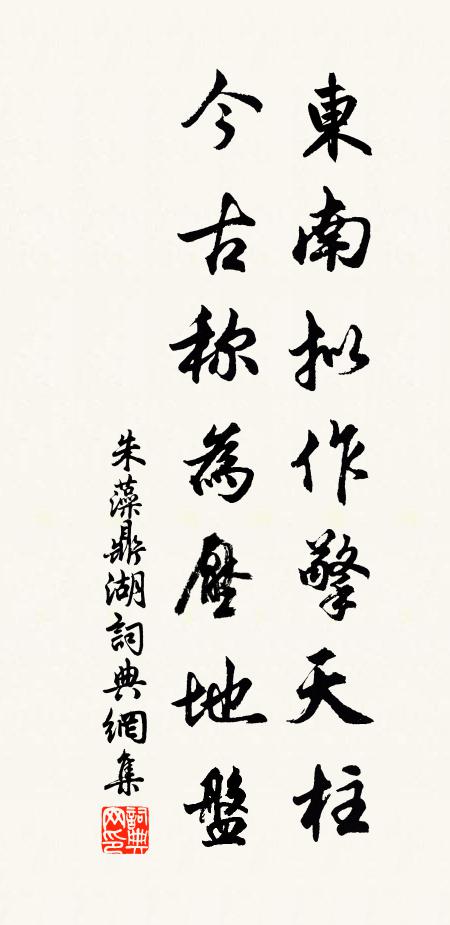 東南拟作擎天柱
今古称為壓地盤
朱藻鼎湖詞典網集
詞典網印